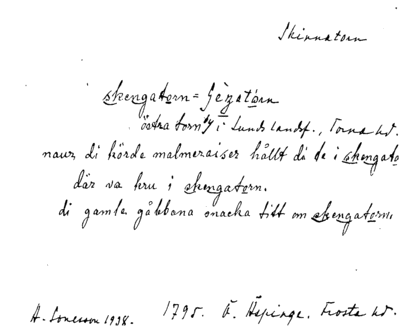 Skinnatorn
skengatorn = jèngatórn
östra torn i Lunds landsf., Torna hd.
naur di körde malmeraiser hållt di te i skengato
där va kru i skengatorn.
di gamle gåbbana snacka titt om skengatorn.
A. Sonesson 1938. 1795. Ö. Äspinge. Frosta hd.